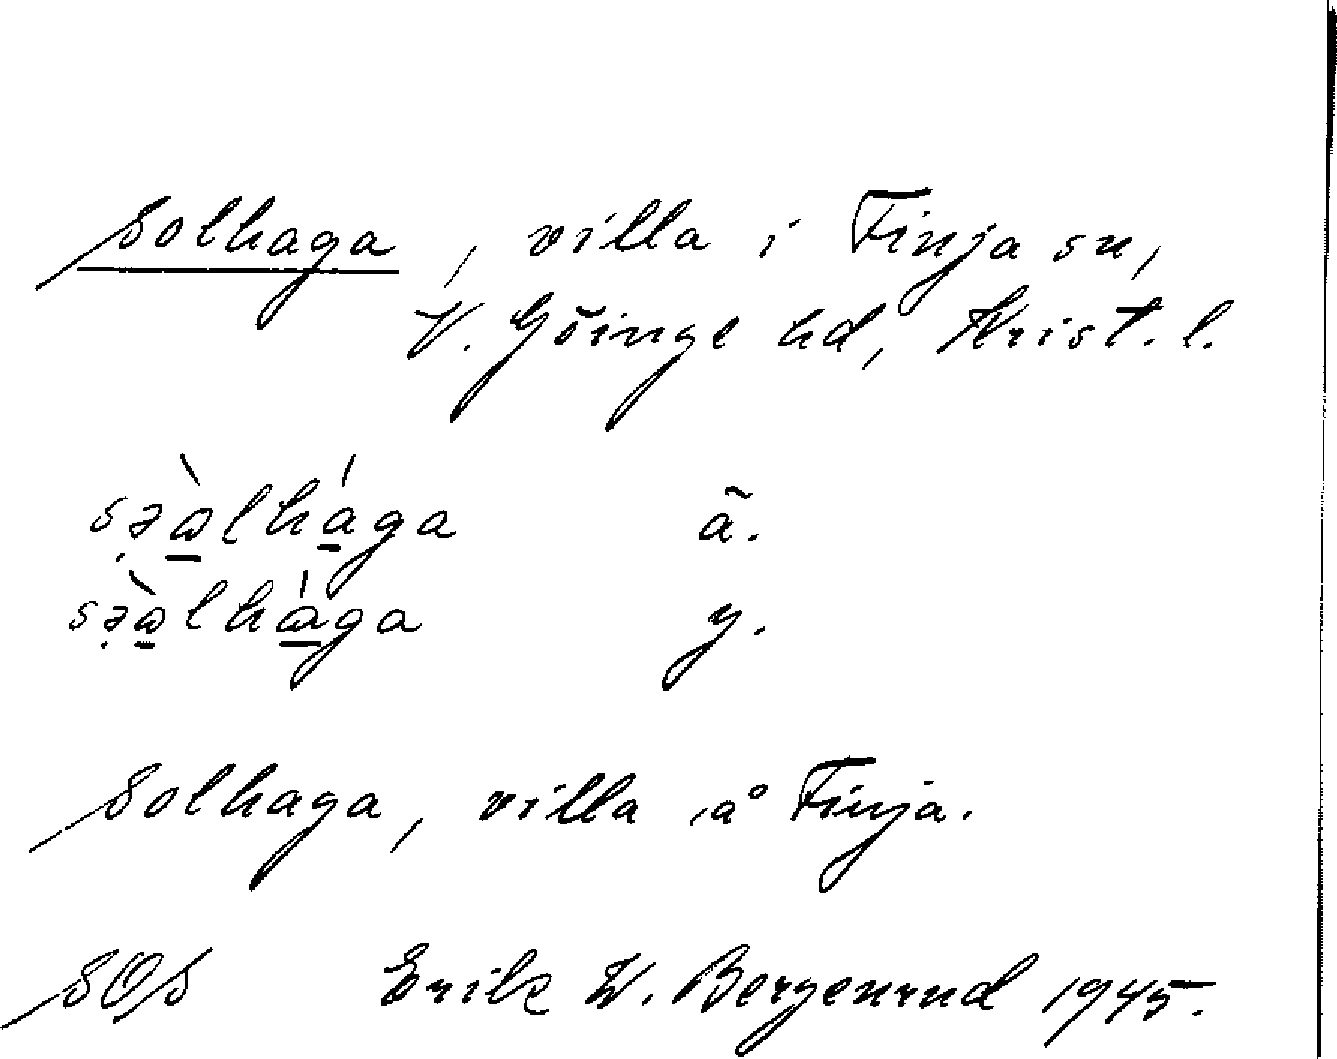 Solhaga, villa i Finja sn,
V. Göinge hd, Krist. l.
sə̣ὰlhága ã.
sə̣ὰlhɑ́ga y.
Solhaga, villa å Finja.
SOS Erik W. Bergenrud 1945.